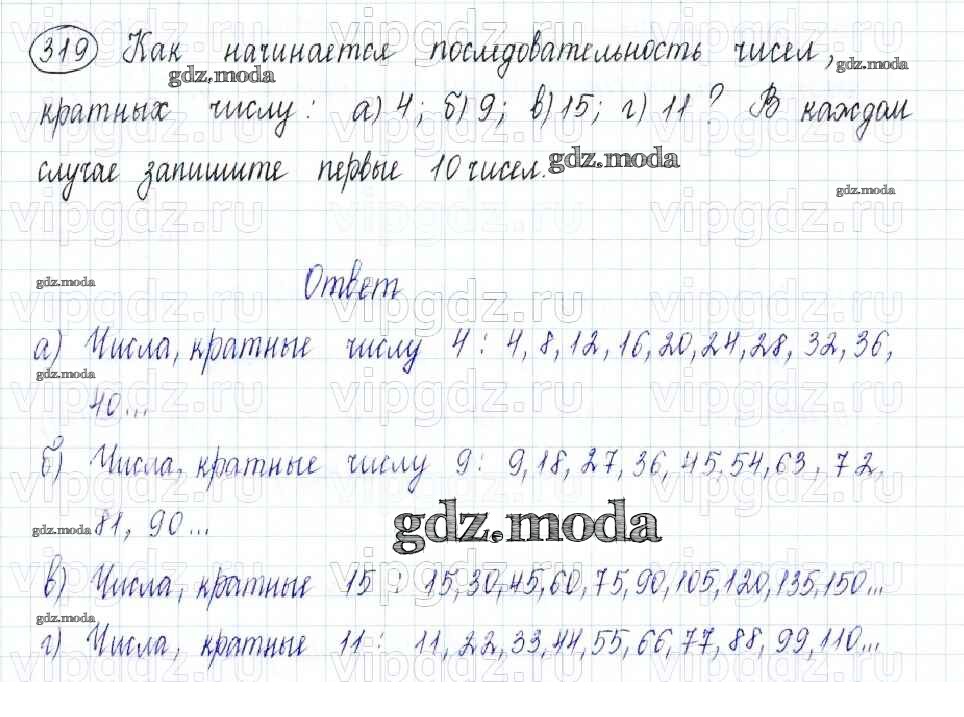 319 Как начинается последовательность чисел,
кратных числу: а) 4; б) 9; в) 15; г) 11? В каждом
случае запишите первые 10 чисел.
Ответ
а) Числа, кратные числу 4: 4, 8, 12, 16, 20, 24, 28, 32, 36,
40...
б) Числа, кратные числу 9: 9, 18, 27, 36, 45, 54, 63, 72,
81, 90...
в) Числа, кратные 15: 15, 30, 45, 60, 75, 90, 105, 120, 135, 150...
г) Числа, кратные 11: 11, 22, 33, 44, 55, 66, 77, 88, 99, 110...
gdz.moda
vipgdz.ru